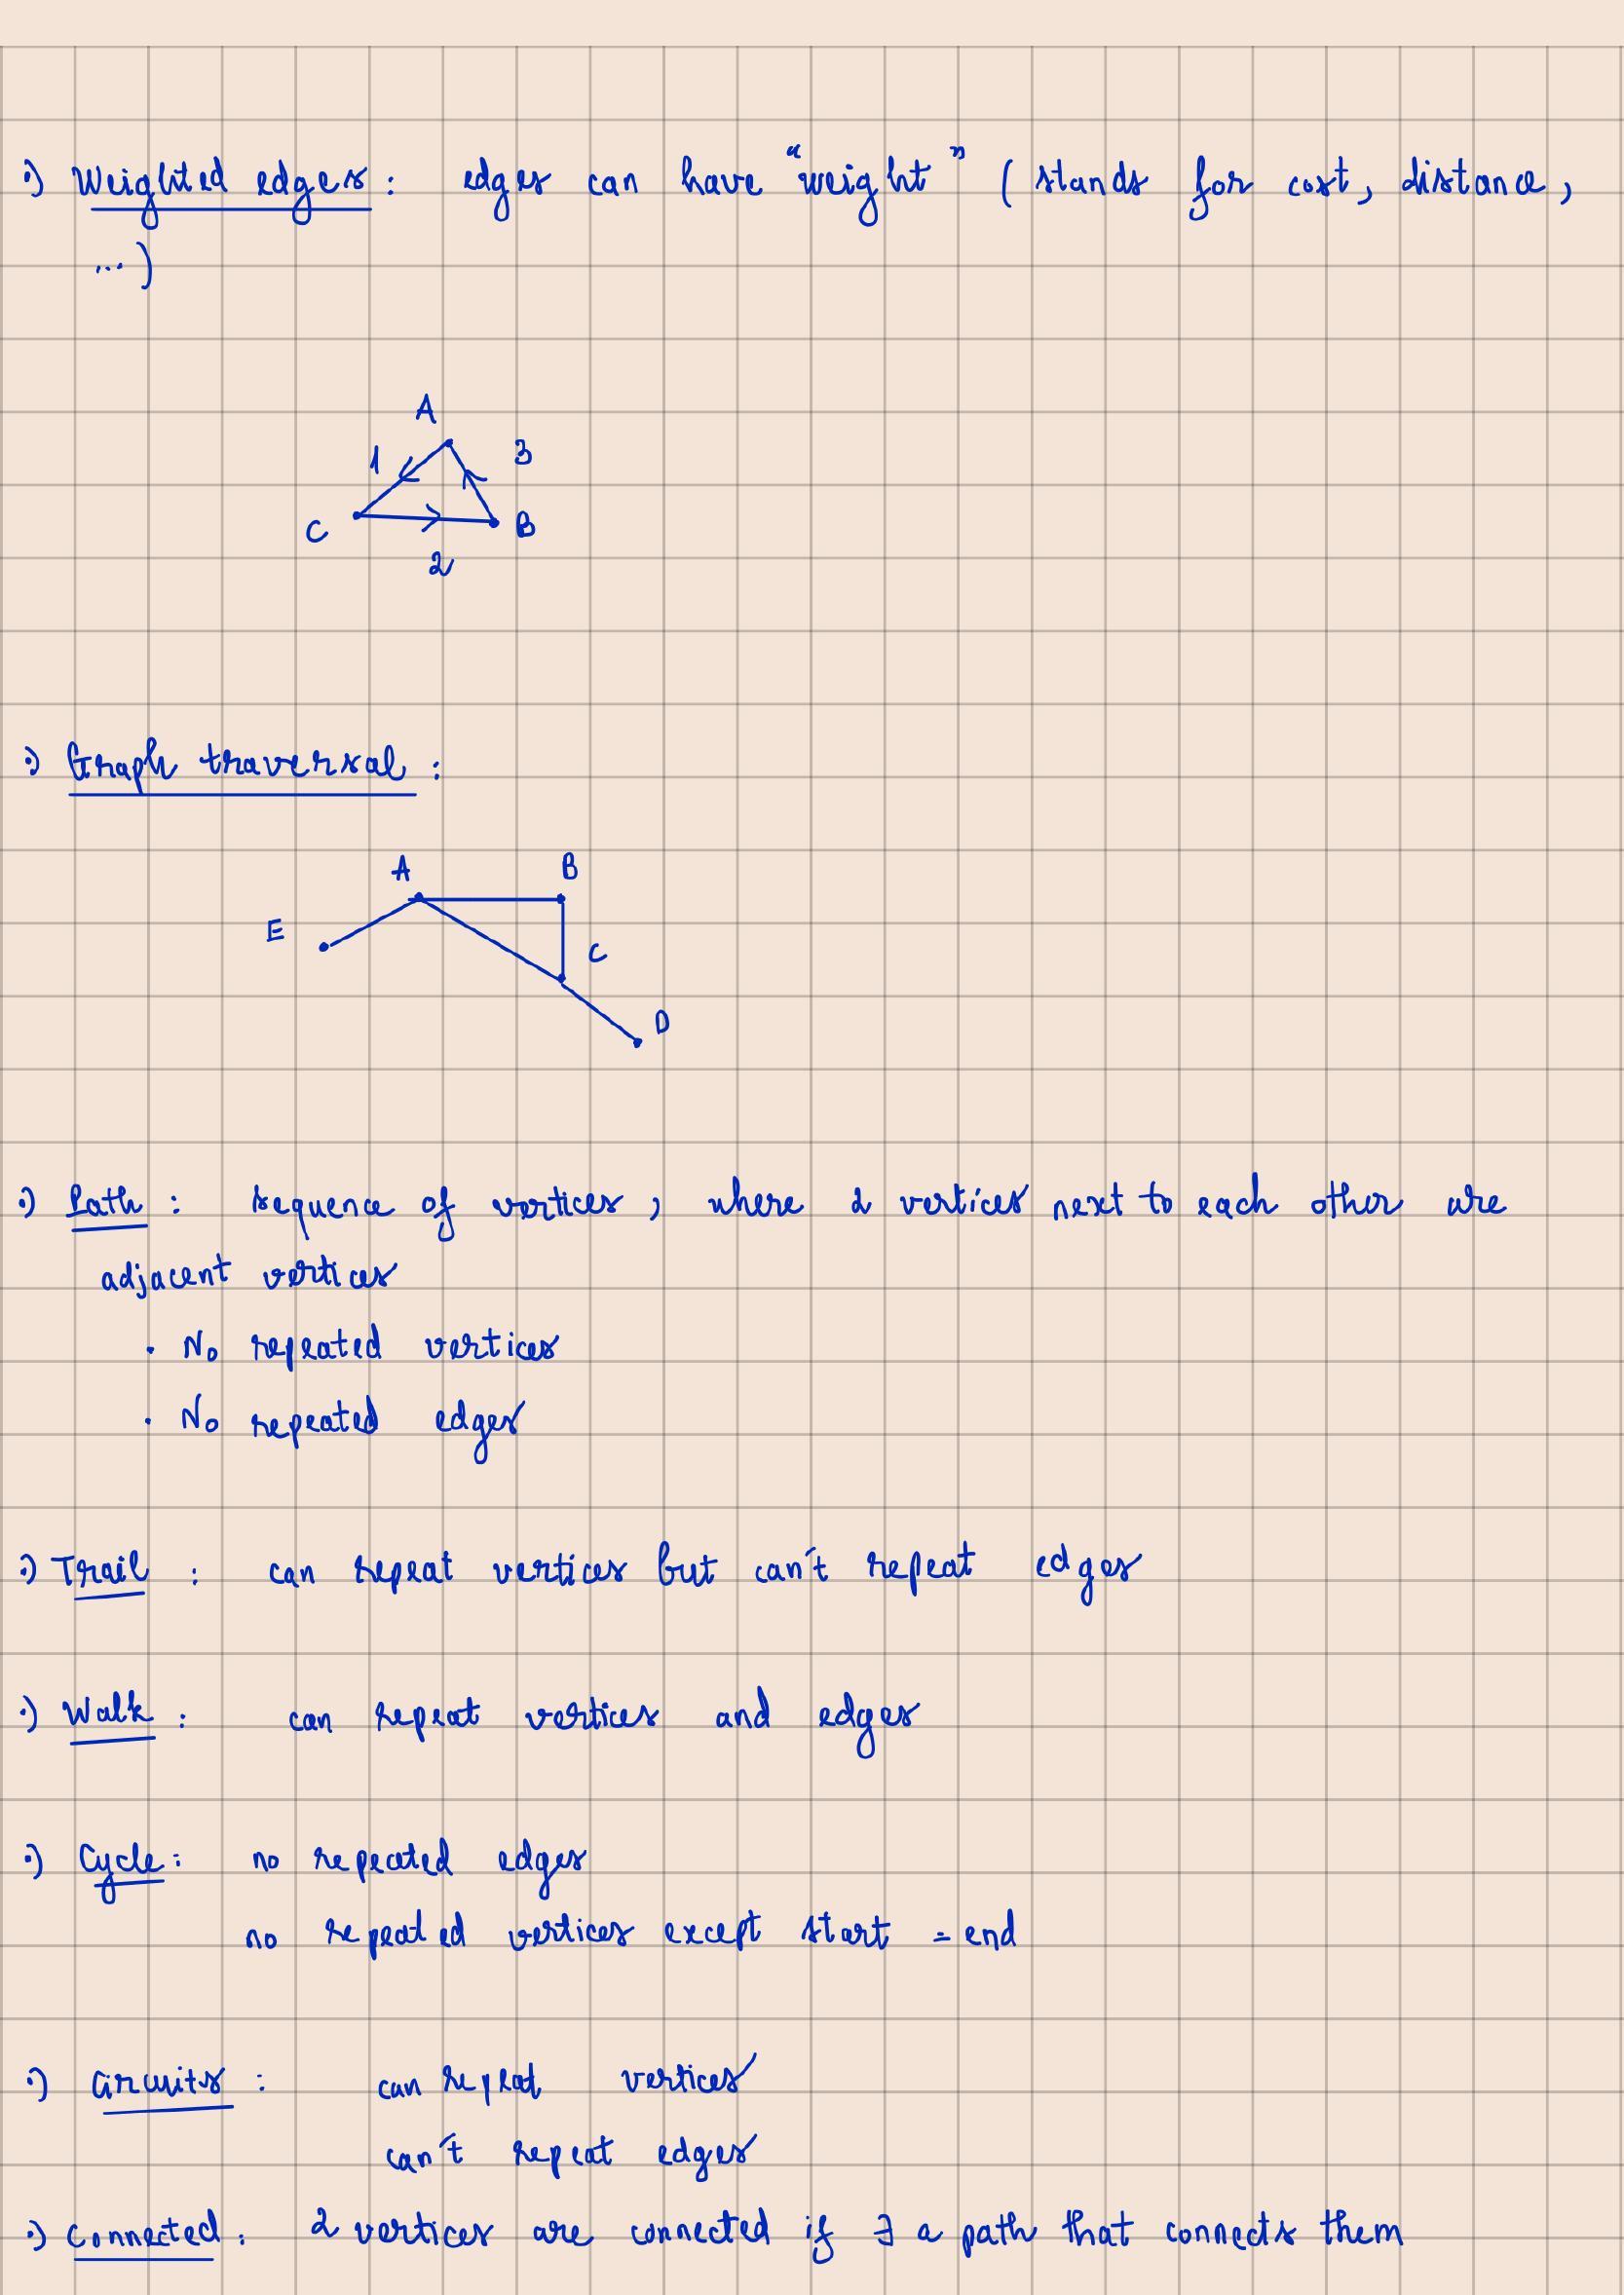 :) Weighted edges : edges can have "weight" ( stands for cost, distance ,
... )
A
1 3
C B
2
:) Graph traversal :
A B
E
C
D
:) Path : sequence of vertices , where 2 vertices next to each other are
adjacent vertices
. No repeated vertices
. No repeated edges
:) Trail : can repeat vertices but can't repeat edges
:) Walk : can repeat vertices and edges
:) Cycle : no repeated edges
no repeated vertices except start = end
:) Circuits : can repeat vertices
can't repeat edges
:) Connected : 2 vertices are connected if ∃ a path that connects them